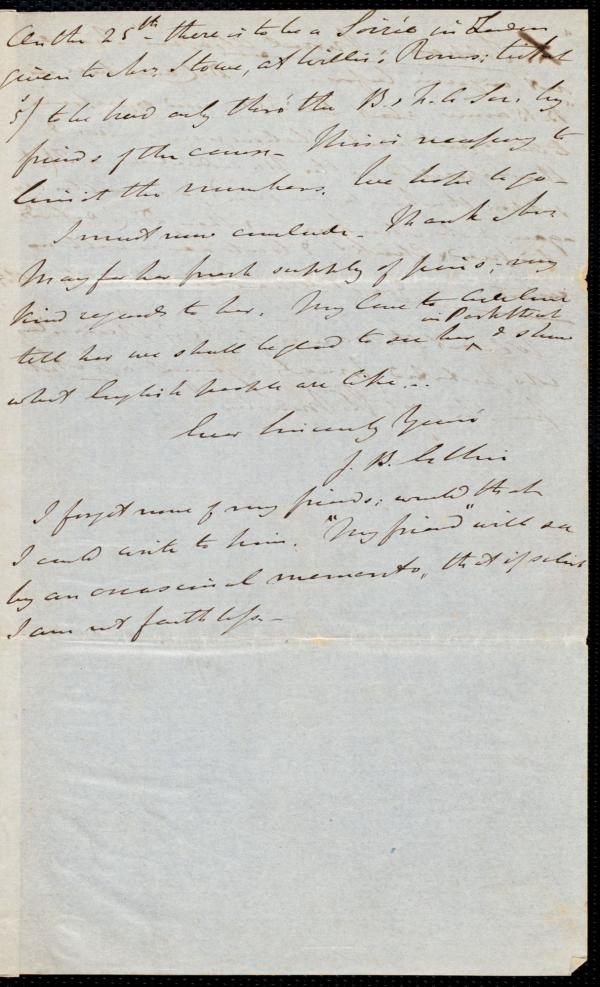 On the 25th there is to be a Soirée in London
given to Mrs Stowe, at Willis's Rooms; ticket
5/ to be had only thro' the B. & F. A. Soc. by
friends of the cause. This is necessary to
limit the numbers. We hope to go.
I must now conclude. Thank Mrs
May for her fresh supply of pens; my
kind regards to her. My love to Caroline
in Park Street
tell her we shall be glad to see her, & show
what English people are like...
Ever Sincerely Yours
J. B. Estlin
I forget none of my friends; would that
I could write to him. "My friend" will see
by an occasional memento, that if silent
I am not faithless.